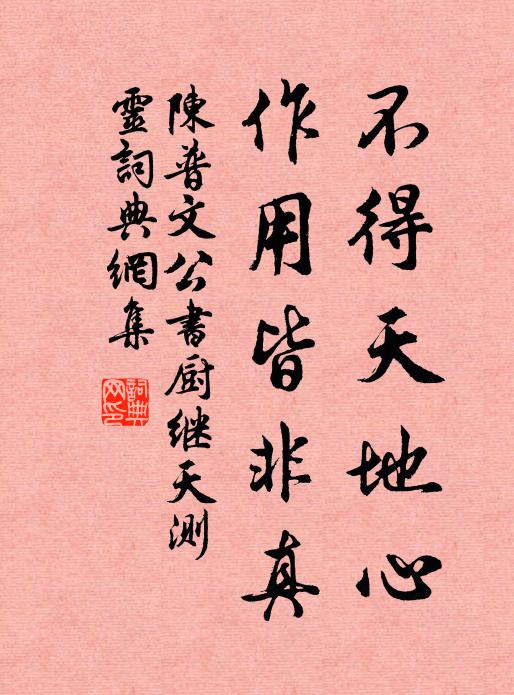 不得天地心
作用皆非真
陳普文公書厨继天測
靈詞典網集
詞典網印